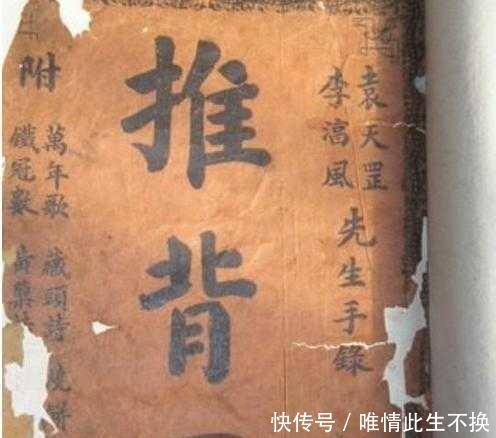 袁天罡
李湻風
先生手錄
推背
附
萬年歌 藏頭詩
鐵冠數
快传号 / 唯情此生不换